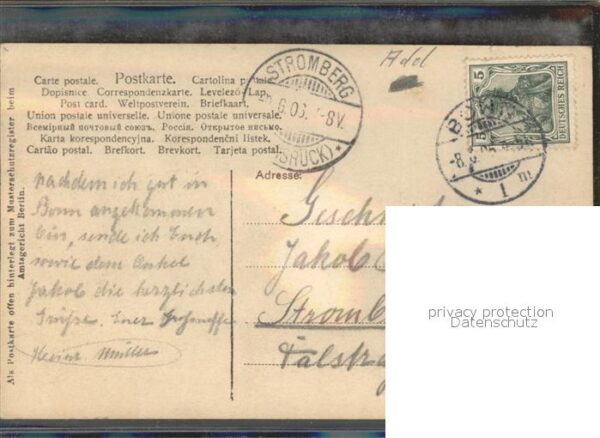 Adol
Carte postale. Postkarte. Cartolina postale.
Dopisnice Correspondenzkarte. Levelező-Lap.
Post card. Weltpostverein. Briefkaart.
Union postale universelle. Unione postale universale.
Всемірный почтовый союзъ. Россія. Открытое письмо.
Karta korespondencyjna. Korespondenční listek.
Cartão postal. Brefkort. Brevkort. Tarjeta postal.
STROMBERG
8V.
(HUNSRÜCK)
5
DEUTSCHES REICH
BONN
1
m
Als Postkarte offen hinterlegt zum Musterschutzregister beim
Amtsgericht Berlin.
nachdem ich gut in
Bonn angekommen
bin, sende ich Euch
sowie dem Onkel
Jakob die herzlichsten
Grüße. Euer Großneffe
Heinr. Müller
Adresse:
Geschw
Jakob
Strom
Talstr
privacy protection
Datenschutz